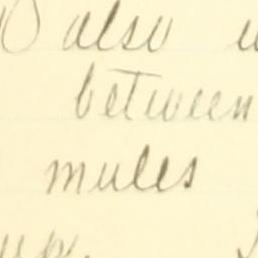 also
between
mules
up.